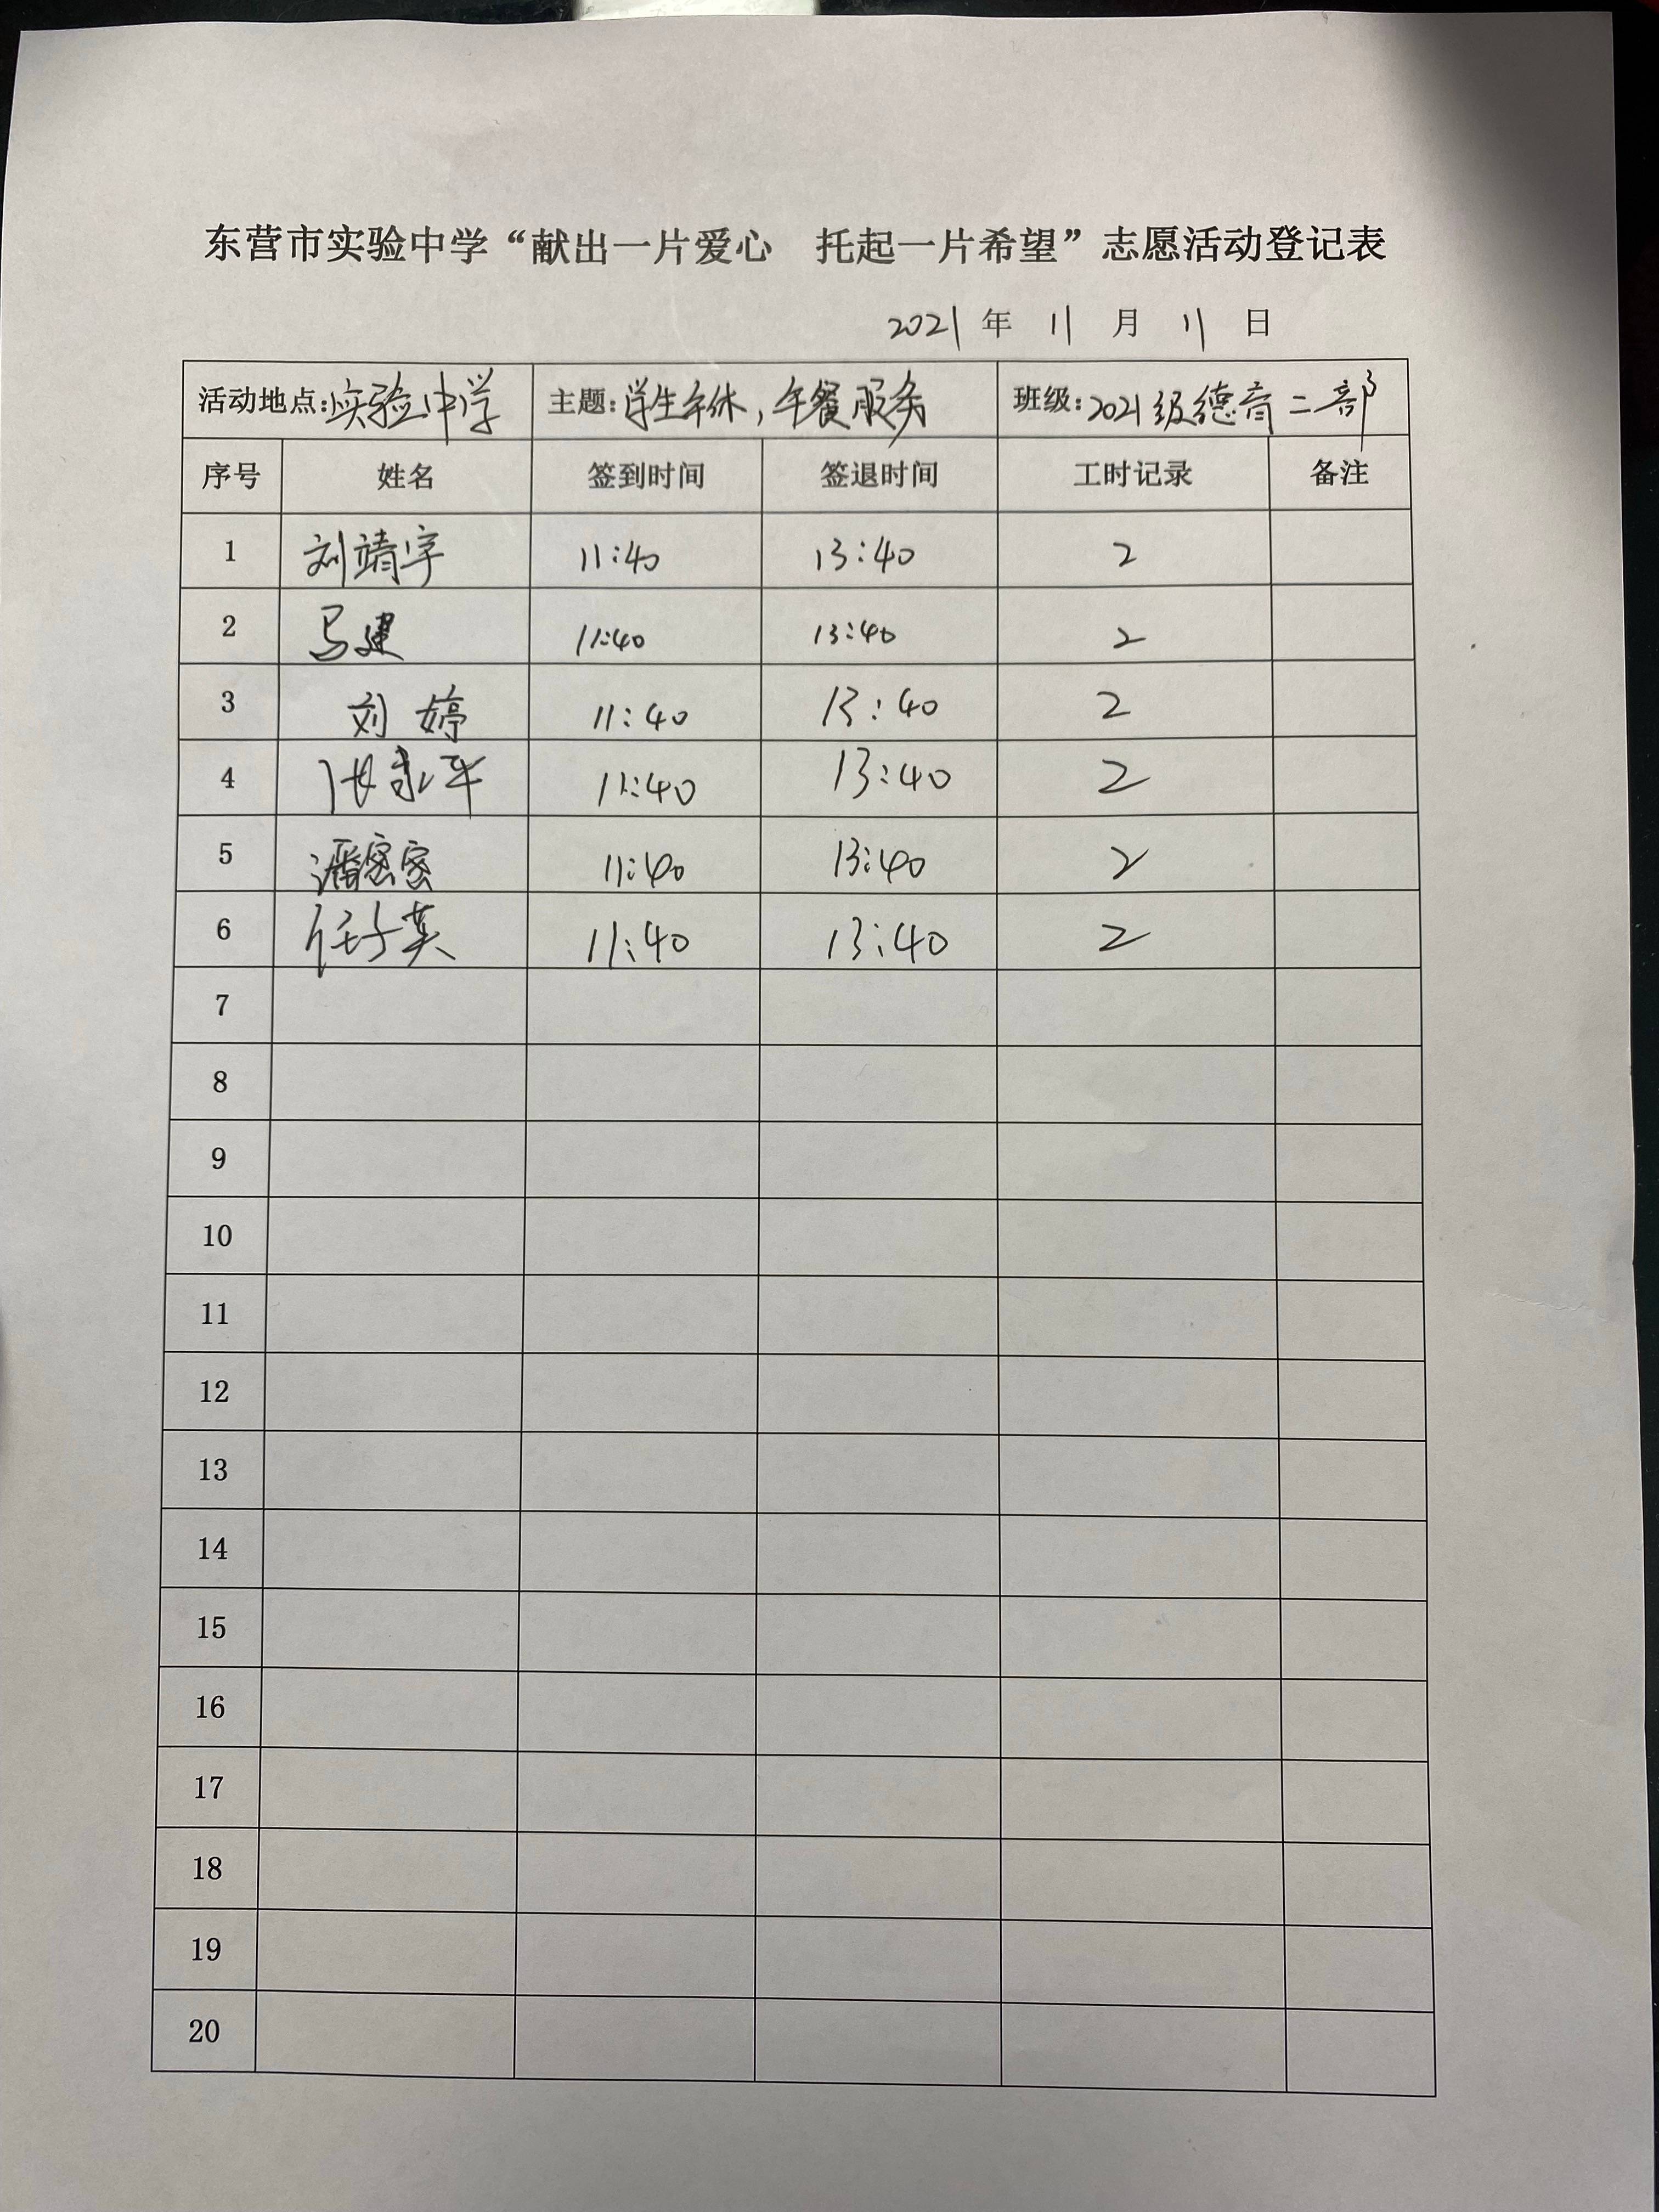 东营市实验中学“献出一片爱心 托起一片希望”志愿活动登记表
2021 年 11 月 11 日
活动地点:实验中学 主题:学生午休,午餐服务 班级:2021级德育二部
序号 姓名 签到时间 签退时间 工时记录 备注
1 刘靖宇 11:40 13:40 2
2 马建 11:40 13:40 2
3 刘婷 11:40 13:40 2
4 11:40 13:40 2
5 潘密密 11:40 13:40 2
6 任子英 11:40 13:40 2
7
8
9
10
11
12
13
14
15
16
17
18
19
20